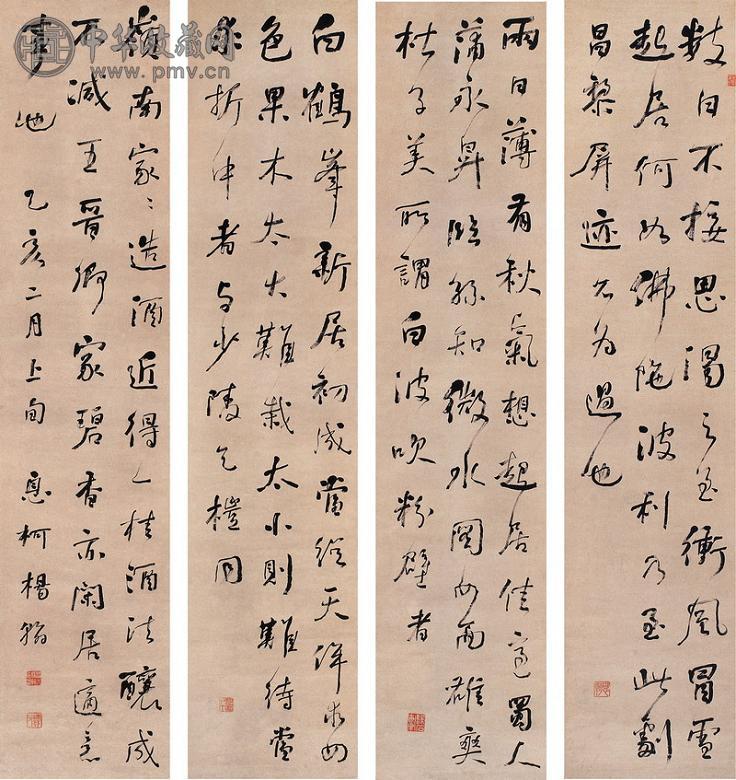 中华收藏网
www.pmv.cn
數日不接思渴之至衝風冒雪
起居何如佛陀波利乃至此劇
昌黎屏迹為過也
雨日薄有秋氣想起居佳適蜀人
蒲永昇臨孫知微水圖四面雄爽
杜子美所謂白波吹粉壁者
白鶴峯新居初成當從天侔求數
色果木太大難栽太小則難待當
求折中者與少陵乞榿同
嶺南家〻造酒近得一桂酒法釀成
不減王晉卿家碧香亦閑居適意
事也 乙亥二月上旬 息柯楊翰